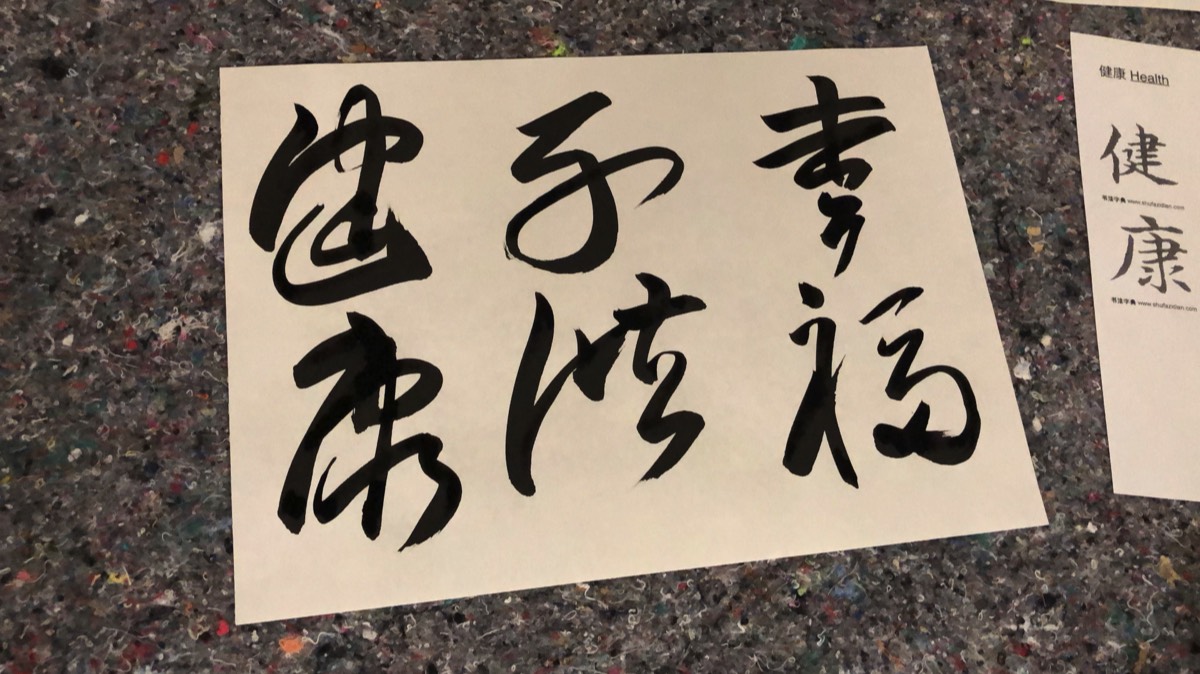 幸福
健康
健康 Health
健
书法字典 www.shufazidian.com
康
书法字典 www.shufazidian.com